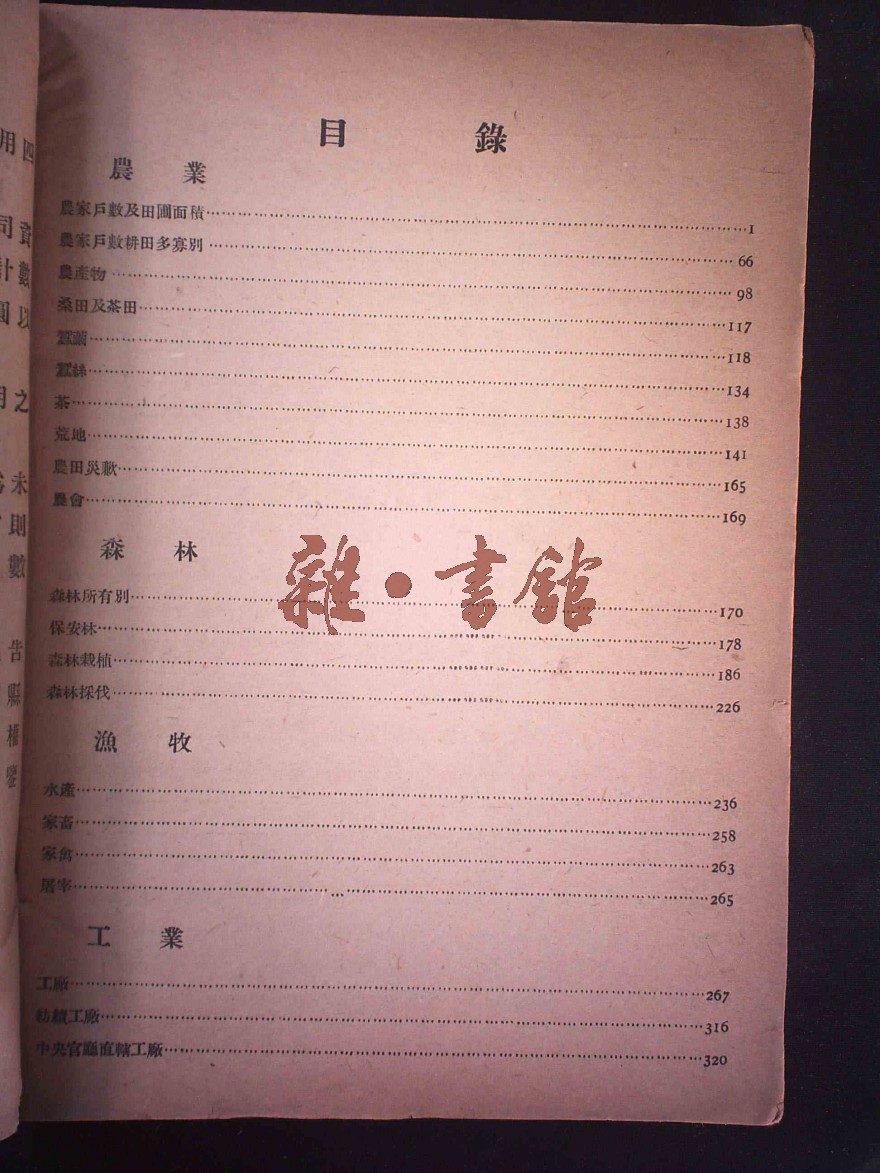 目錄
農業
農家戶數及田圃面積……1
農家戶數耕田多寡別……66
農產物……98
桑田及茶田……117
蠶繭……118
蠶絲……134
茶……138
荒地……141
農田災歉……165
農會……169
森林
森林所有別……170
保安林……178
森林栽植……186
森林採伐……226
漁牧
水產……236
家畜……258
家禽……263
屠宰……265
工業
工廠……267
紡績工廠……316
中央官廳直轄工廠……320
雜·書館